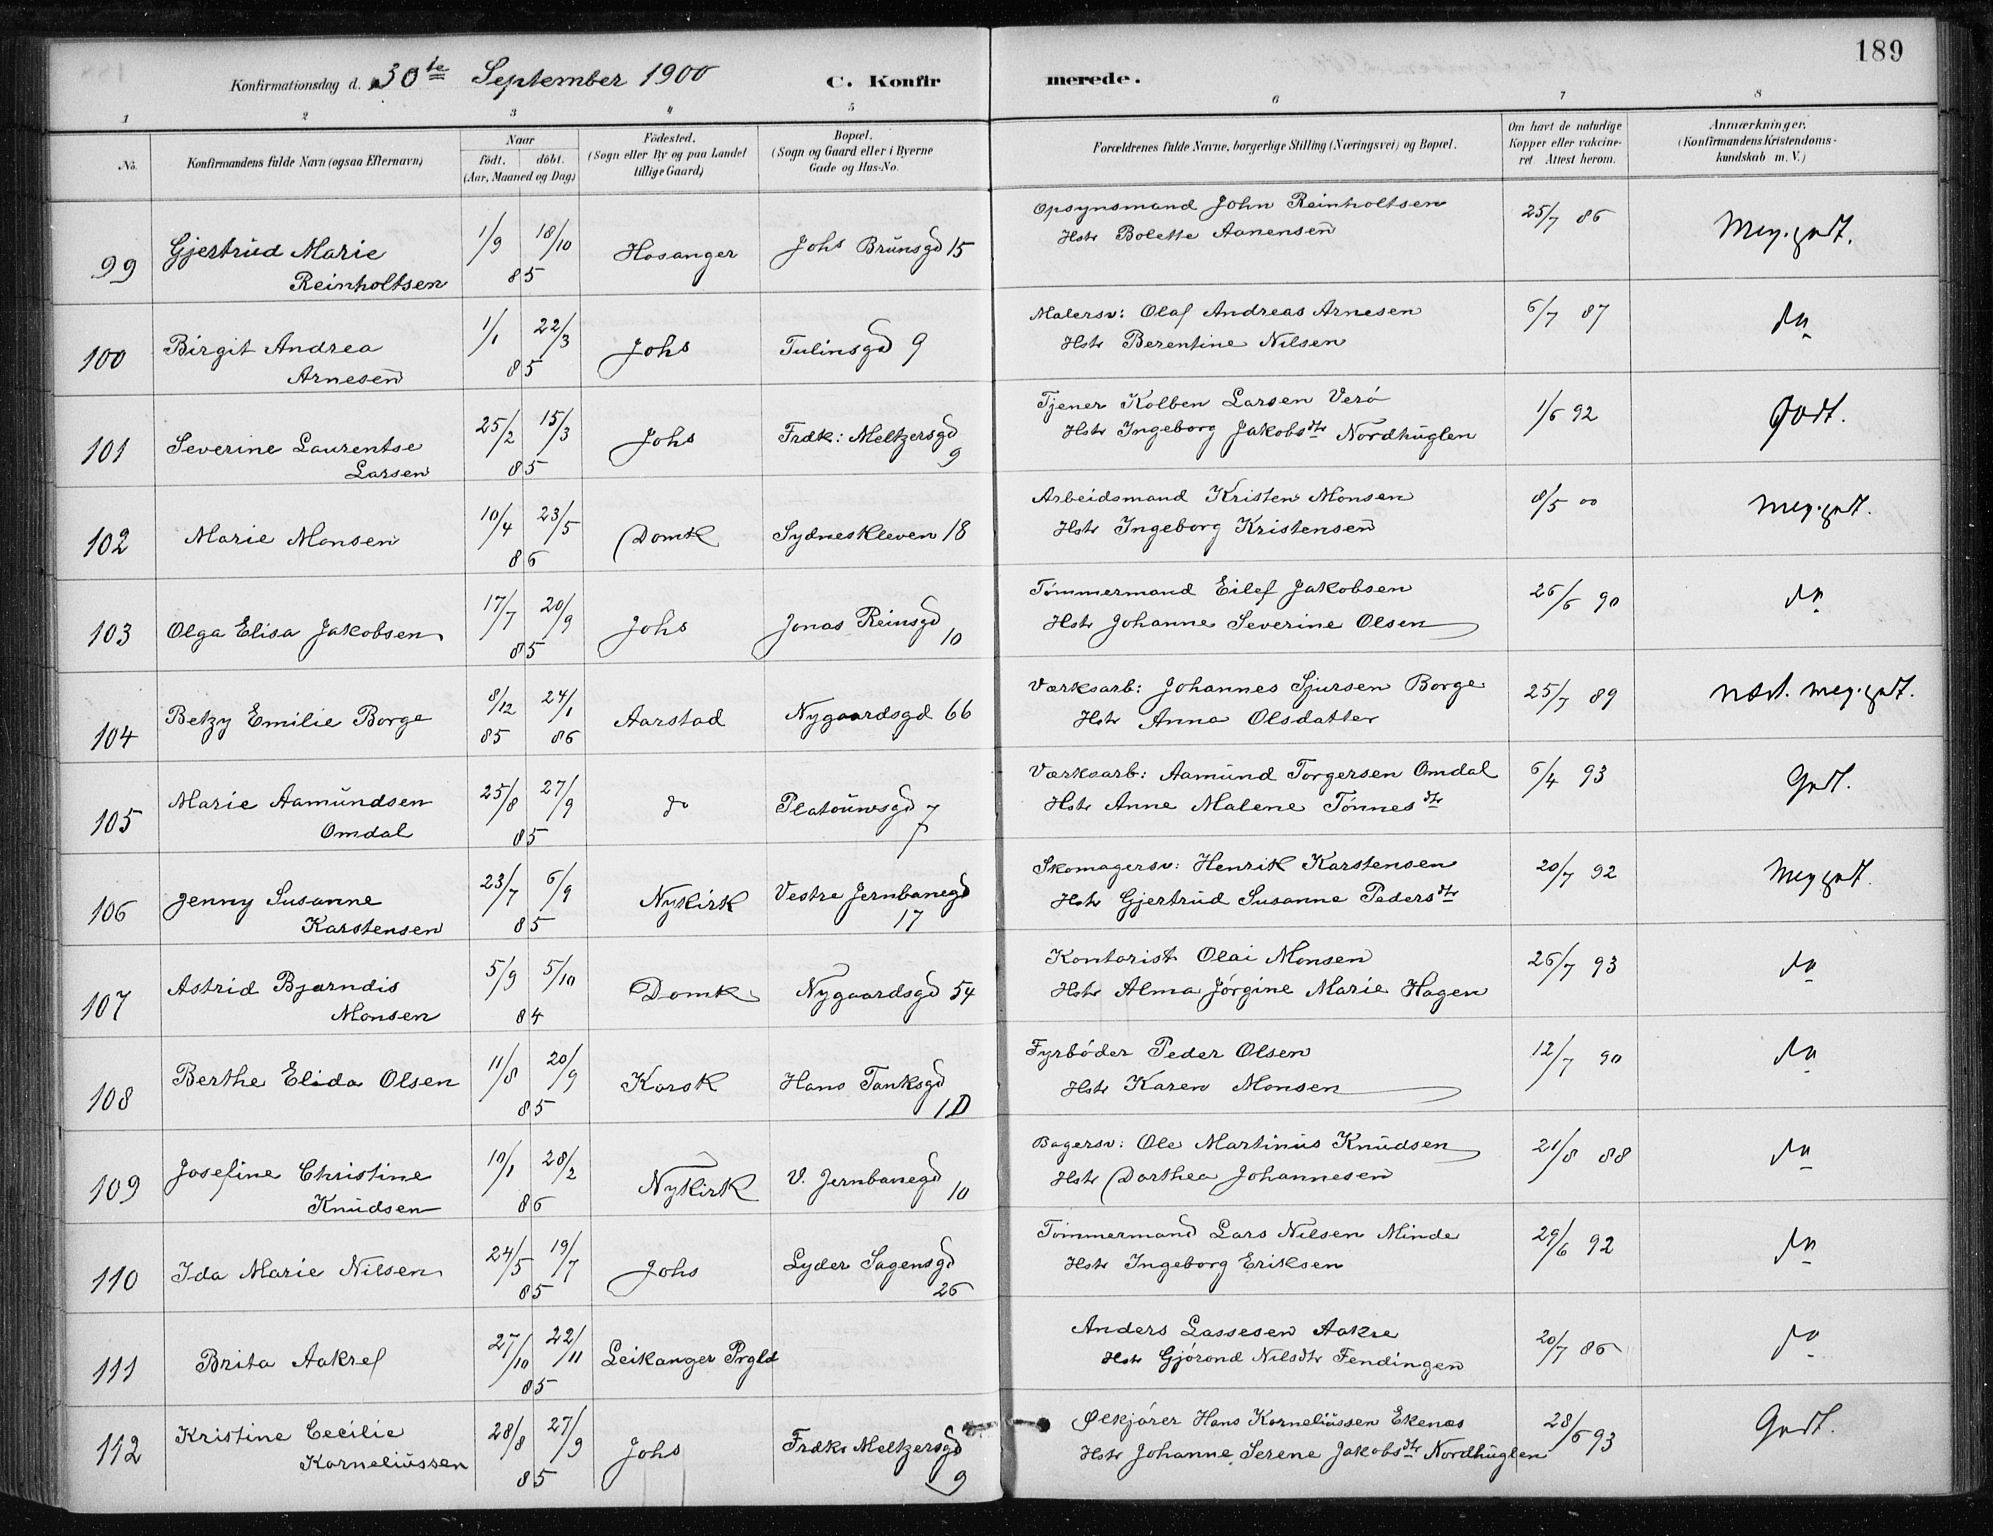 189
Konfirmationsdag d. 30te September 1900 C. Konfirmerede.
1 2 3 4 5 6 7 8
No. Konfirmandens fulde Navn (ogsaa Efternavn) Naar født. døbt. (Aar, Maaned og Dag) Fødested. (Sogn eller By og paa Landet tillige Gaard) Bopæl. (Sogn og Gaard eller i Byerne Gade og Hus-No. Forældrenes fulde Navne, borgerlige Stilling (Næringsvei) og Bopæl. Om havt de naturlige Kopper eller vakcineret. Attest herom. Anmærkninger. (Konfirmandens Kristendomskundskab m. V.)
99 Gjertrud Marie Reinholtsen 1/9 18/10 85 Hosanger Johs Brunsgd 15 Opsynsmand John Reinholtsen
Hstr Bolette Aanensen 25/7 86 Meg. godt.
100 Birgit Andrea Arnesen 1/1 22/3 85 Johs Tulinsgd 9 Malersv: Olaf Andreas Arnesen
Hstr Berentine Nilsen 6/7 87 do
101 Severine Laurentse Larsen 25/2 15/3 85 Johs Fredk: Meltzersgd 9 Tjener Kolben Larsen Verø
Hstr Ingeborg Jakobsdtr Nordhuglen 1/6 92 Godt.
102 Marie Monsen 10/4 23/5 86 Domk Sydneskleven 18 Arbeidsmand Kristen Monsen
Hstr Ingeborg Kristensen 8/5 00 Meg. godt.
103 Olga Elisa Jakobsen 17/7 20/9 85 Johs Jonas Reinsgd 10 Tømmermand Eilef Jakobsen
Hstr Johanne Severine Olsen 26/6 90 do
104 Betzy Emilie Borge 8/12 85 24/1 86 Aarstad Nygaardsgd 66 Værksarb: Johannes Sjursen Borge
Hstr Anna Olsdatter 25/7 89 næst. meg. godt.
105 Marie Aamundsen Omdal 25/8 27/9 85 do Platouwsgd 7 Værksarb: Aamund Torgersen Omdal
Hstr Anne Malene Tønnesdtr 6/4 93 Godt.
106 Jenny Susanne Karstensen 23/7 6/9 85 Nykirk Vestre Jernbanegd 17 Skomagersv: Henrik Karstensen
Hstr Gjertrud Susanne Pedersdtr 20/7 92 Meg godt.
107 Astrid Bjarndis Monsen 5/9 5/10 84 Domk Nygaardsgd 54 Kontorist Olai Monsen
Hstr Alma Jørgine Marie Hagen 26/7 93 do
108 Berthe Elida Olsen 11/8 20/9 85 Korsk Hans Tanksgd 1D Fyrbøder Peder Olsen
Hstr Karen Monsen 12/7 90 do
109 Josefine Christine Knudsen 10/1 28/2 86 Nykirk V. Jernbanegd 10 Bagersv: Ole Martinus Knudsen
Hstr Dorthea Johannesen 21/8 88 do
110 Ida Marie Nilsen 24/5 19/7 85 Johs Lyder Sagensgd 26 Tømmermand Lars Nilsen Minde
Hstr Ingeborg Eriksen 29/6 92 do
111 Brita Aakref 27/10 22/11 85 Leikanger Prgld Anders Lassesen Aakre
Hstr Gjørond Nilsdtr Fendingen 20/7 86 do
112 Kristine Cecilie Korneliussen 28/8 27/9 85 Johs Fredks Meltzersgd 9 Ølkjører Hans Korneliussen Ekenæs
Hstr Johanne Serene Jakobsdtr Nordhuglen 28/6 93 Godt.